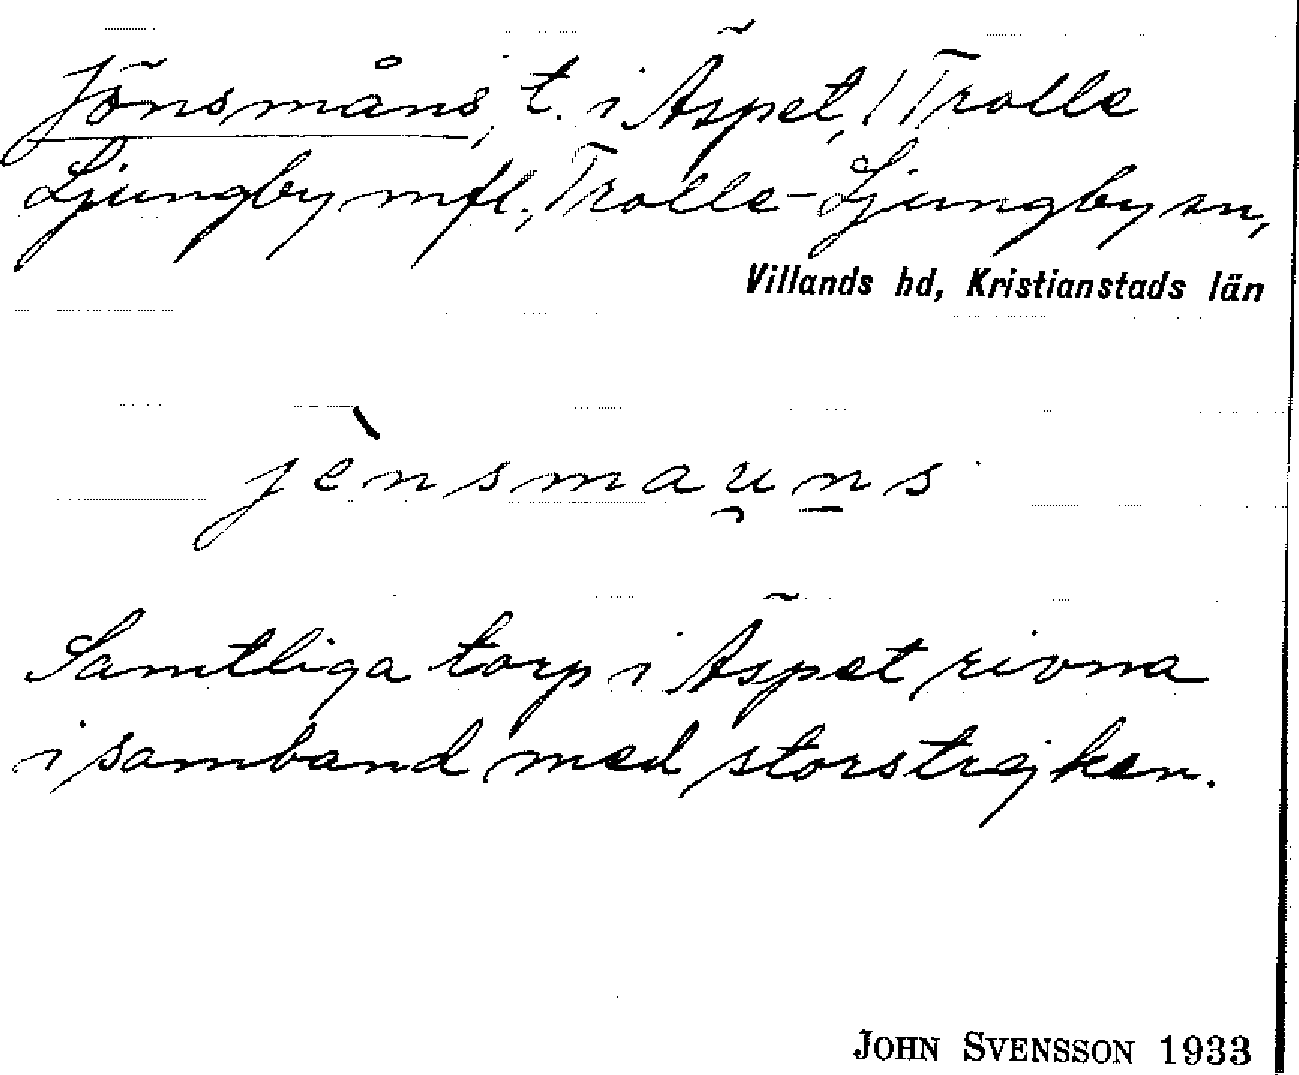 Jönsmåns, t. i Äspet, / Trolle
Ljungby mfl., Trolle-Ljungby sn,
Villands hd, Kristianstads län
jènsmau̯n̠s
Samtliga torp i Äspet rivna
i samband med storstrejken.
JOHN SVENSSON 1933